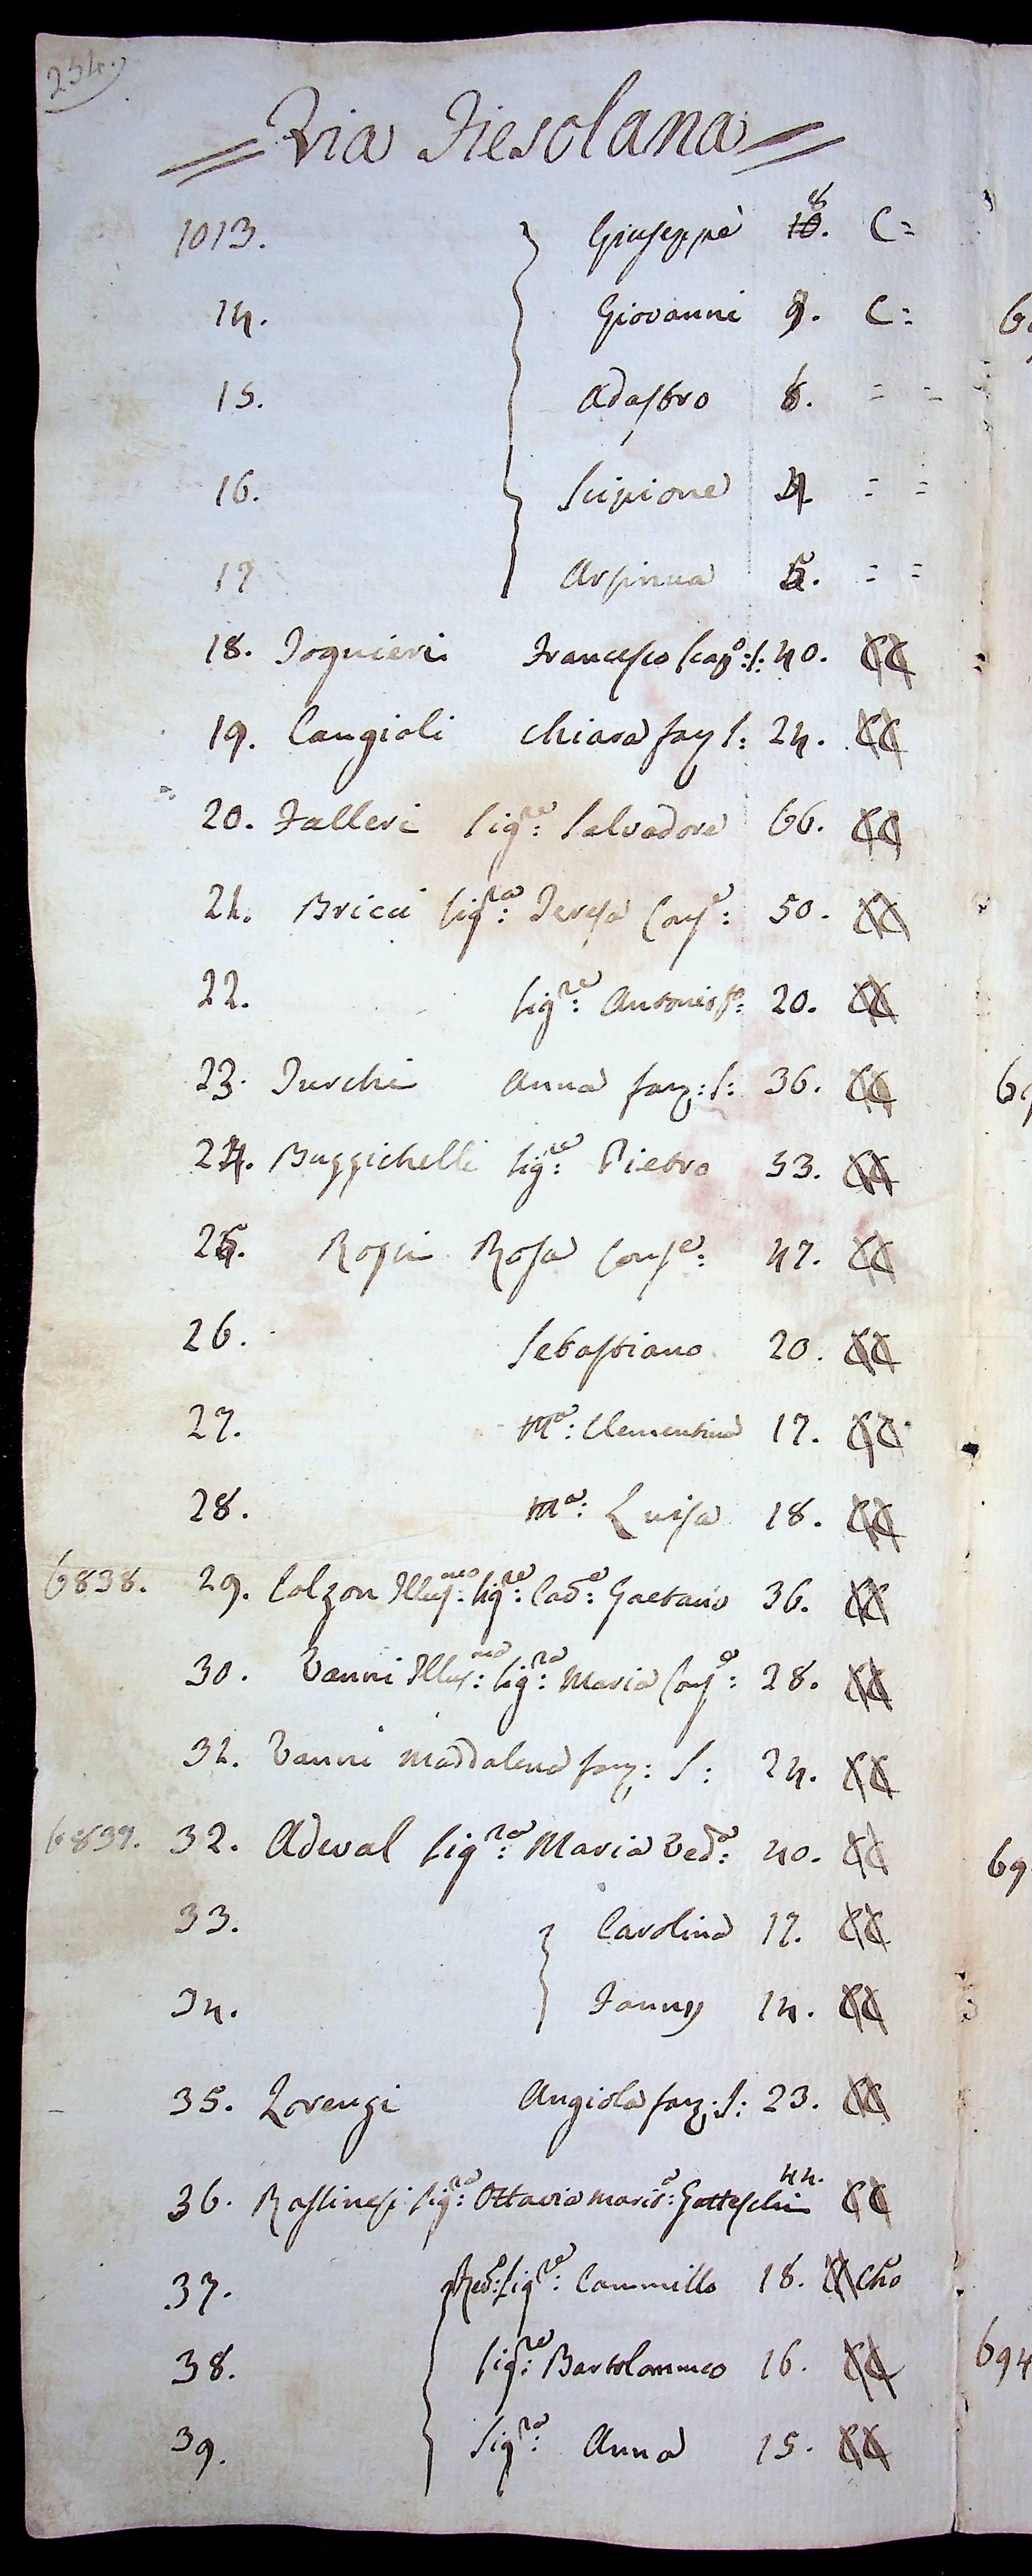 254.
= Via Fiesolana =
1013. Giuseppe 8 C=
14. Giovanni 9. C=
15. Adastro 6. = =
16. Scipione 4. = =
17 Arsinua 5. = =
18. Togneri Francesco scap°: s: 40. CC
19. Cangioli Chiara fan S: 24. CC
20. Falleri Sig:re Salvadore 66. CC
21. Bricci Sig:ra Teresa Cons:e 50. CC
22. Sig:re Antonio f°: 20. CC
23. Turchi Anna fan: S: 36. CC
24. Buggichelli Sig:re Pietro 53. CC
25. Rosa Cons:e 47. CC
26. Sebastiano 20. CC
27. M:a Clementina 17. CC
28. M:a Luisa 18. CC
6838. 29. Colzon Illus:mo Sig:re Cav:e Gaetano 36. CC
30. Vanni Illus:ma Sig:ra Maria Cons:e 28. CC
31. Vanni Maddalena fan: S: 24. CC
6839. 32. Adeval Sig:ra Maria Ved:a 40. CC
33. Carolina 17. CC
34. Fanny 14. CC
35. Lorenzi Angiola fan: S: 23. CC
36. Rastinesi Sig:ra Ottavia Marit:a Gotteschi 44. CC
37. Red:o Sig:re Cammillo 18. Cho
38. Sig:re Bartolommeo 16. CC
39. Sig:ra Anna 15. CC
694